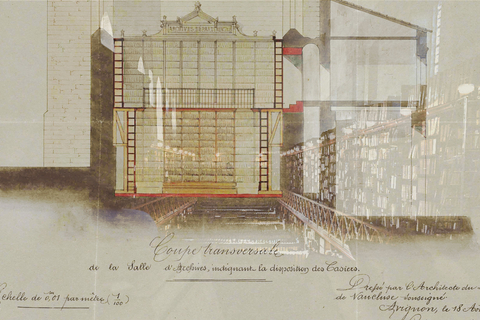 ARCHIVES DEPARTEMENTALES
Coupe transversale
de la Salle d'Archives, indiquant la disposition des Casiers.
Echelle de 0,01 par mètre (1/100)
Dressé par l'Architecte du
de Vaucluse soussigné
Avignon, le 18 Ao